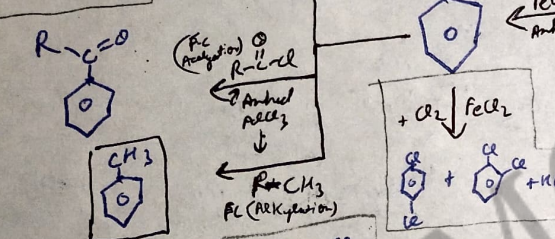 R-C=O
(F.C Acylation)
O
R-C-Cl
Anhyd
AlCl3
CH3
R CH3
FC (Alkylation)
+ Cl2 FeCl2
Cl Cl
Cl
+ +
Cl